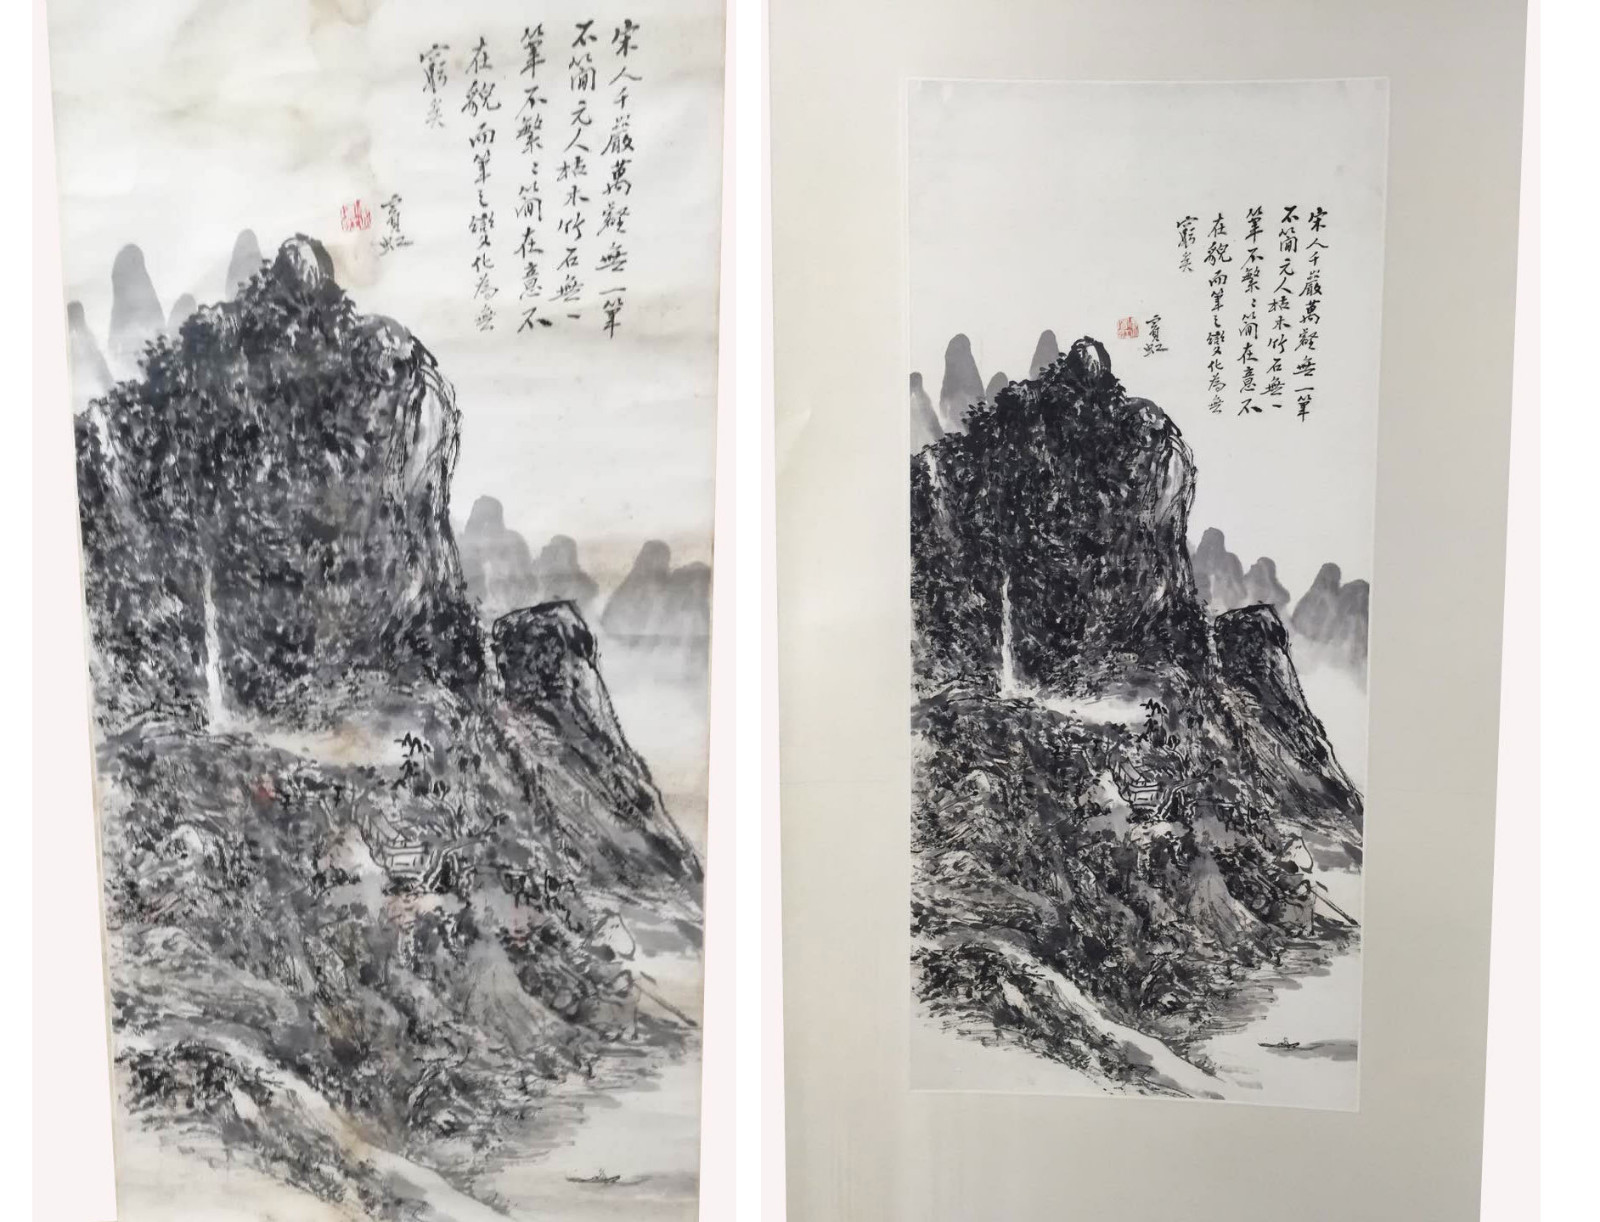 宋人千巖萬壑無一筆
不簡元人枯木竹石無一
筆不繁〻簡在意不
在貌而筆之變化為無
窮矣
賓虹
宋人千巖萬壑無一筆
不簡元人枯木竹石無一
筆不繁〻簡在意不
在貌而筆之變化為無
窮矣
賓虹